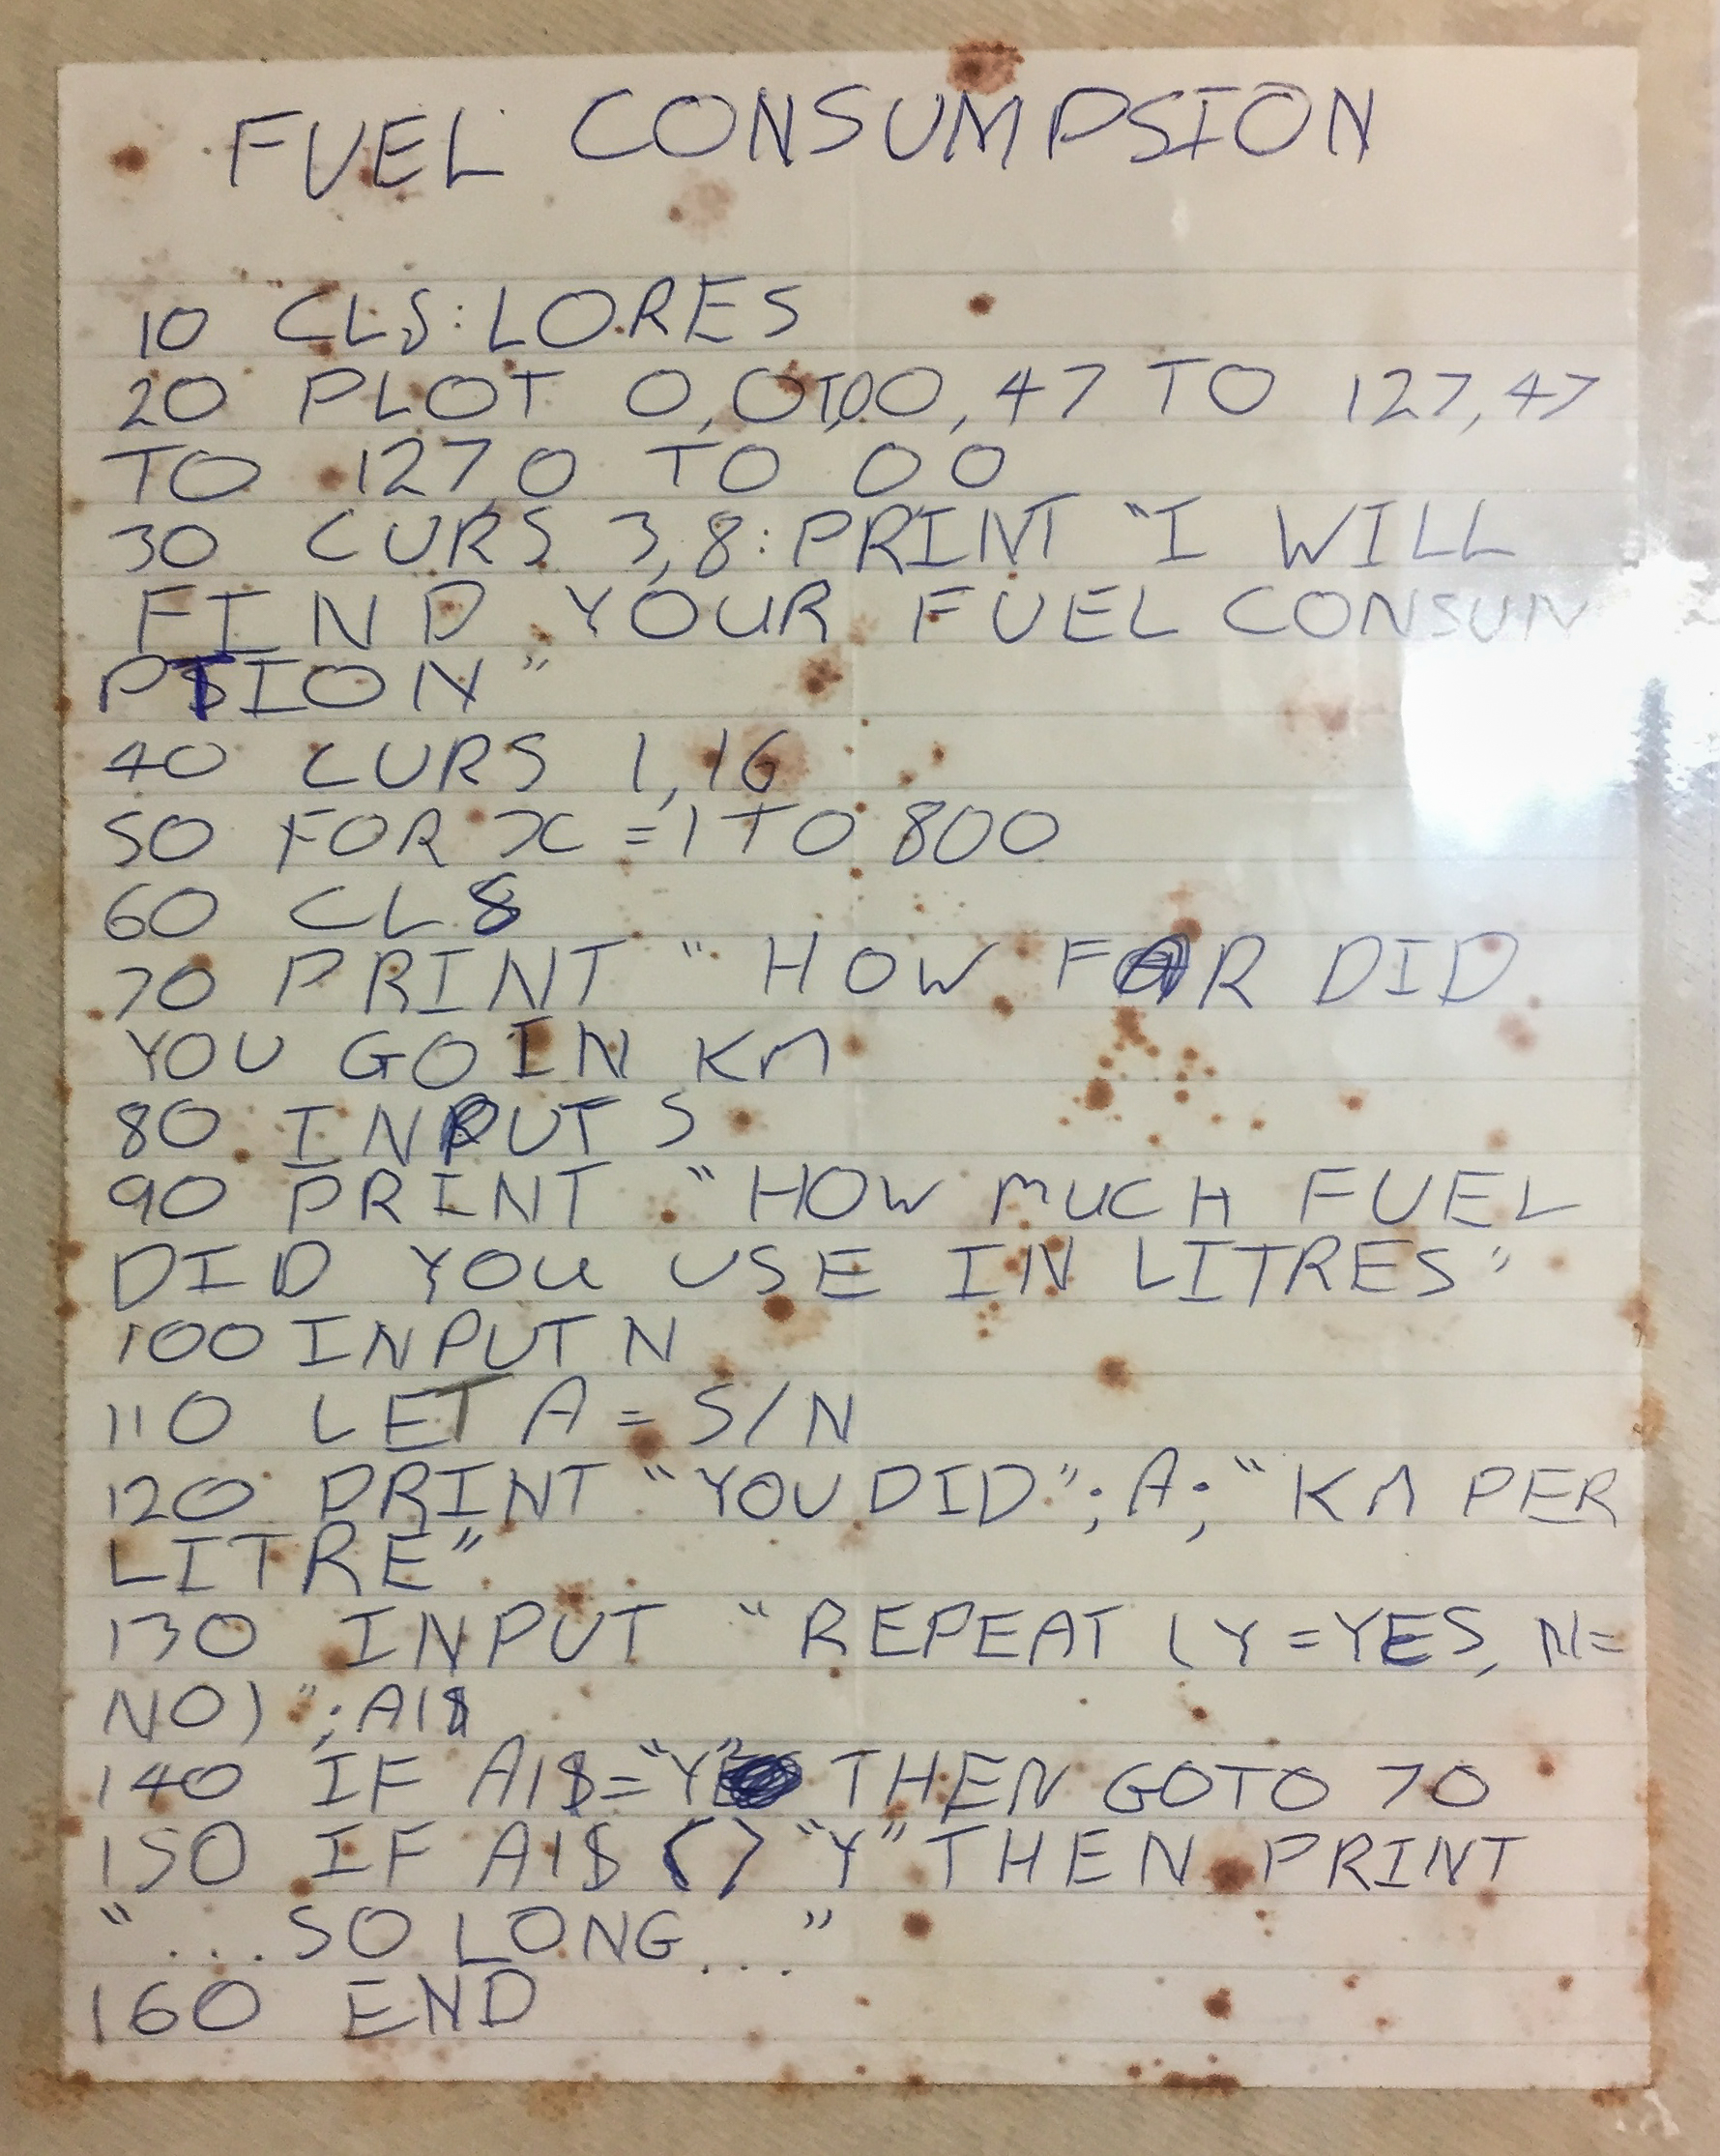 FUEL CONSUMPSION
10 CLS:LORES
20 PLOT 0,0TO0,47 TO 127,47
TO 127,0 TO 0 0
30 CURS 3,8:PRINT "I WILL
FIND YOUR FUEL CONSUM
PTION"
40 CURS 1,16
50 FOR X =1 TO 800
60 CLS
70 PRINT "HOW FAR DID
YOU GO IN KM
80 INPUT S
90 PRINT "HOW MUCH FUEL
DID YOU USE IN LITRES"
100 INPUT N
110 LET A = S/N
120 PRINT "YOU DID";A;"KM PER
LITRE"
130 INPUT "REPEAT (Y=YES, N=
NO)";A1$
140 IF A1$="Y" THEN GOTO 70
150 IF A1$ <> "Y" THEN PRINT
"...SO LONG..."
160 END